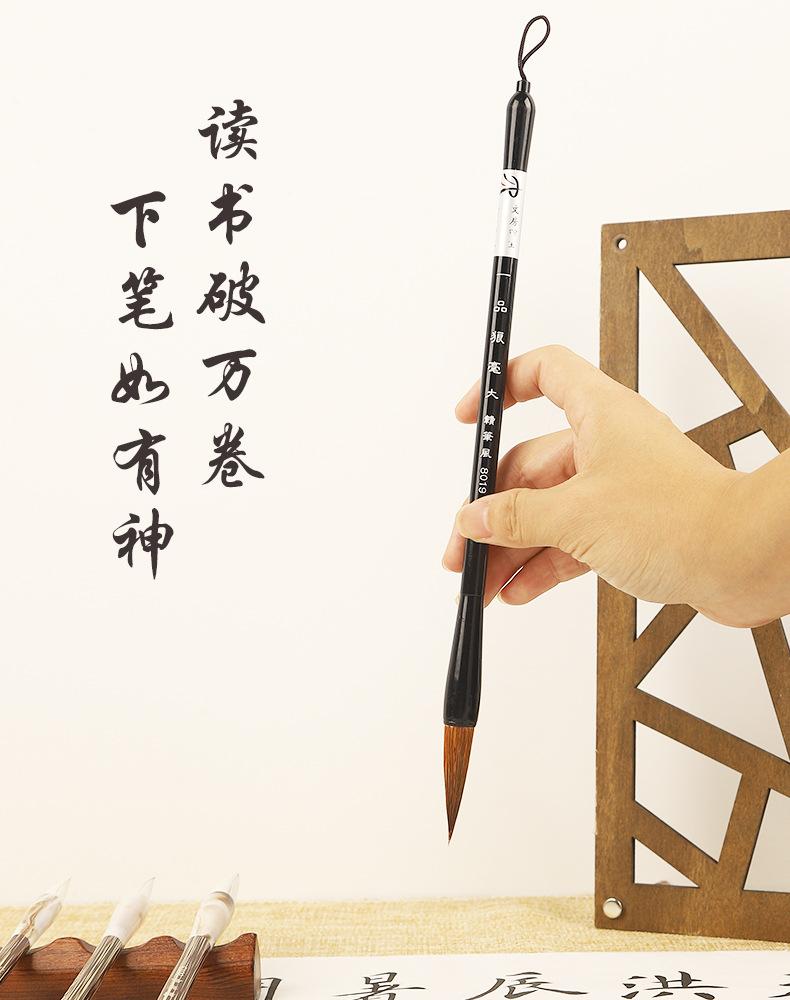 读书破万卷
下笔如有神
一品狼毫大精笔風 8019
辰洪